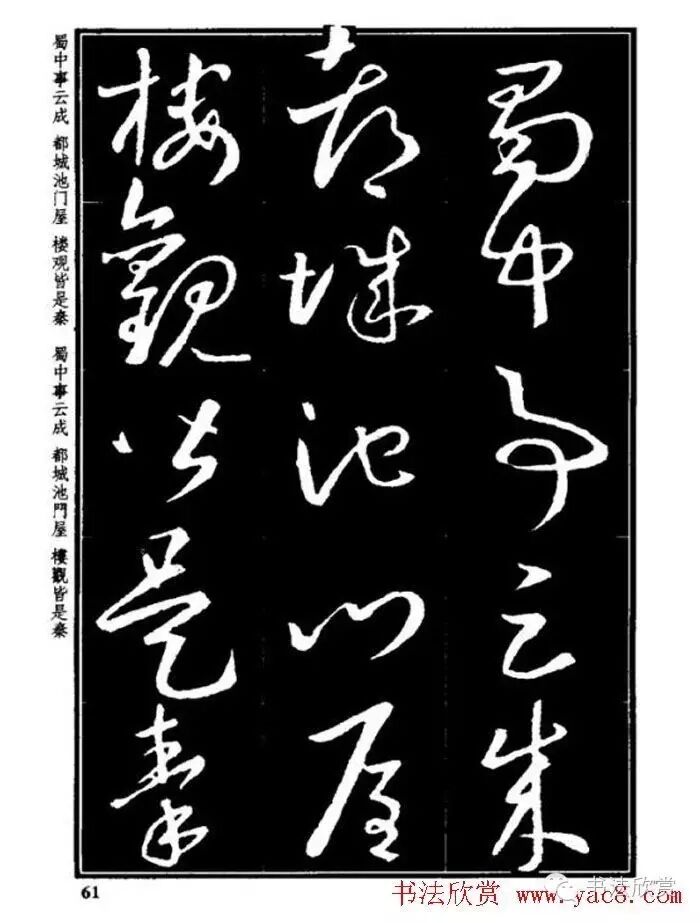 蜀中事云成
都城池門屋
樓觀皆是秦
蜀中事云成 都城池门屋 楼观皆是秦 蜀中事云成 都城池門屋 樓觀皆是秦
61
书法欣赏
书法欣赏 www.yac8.com